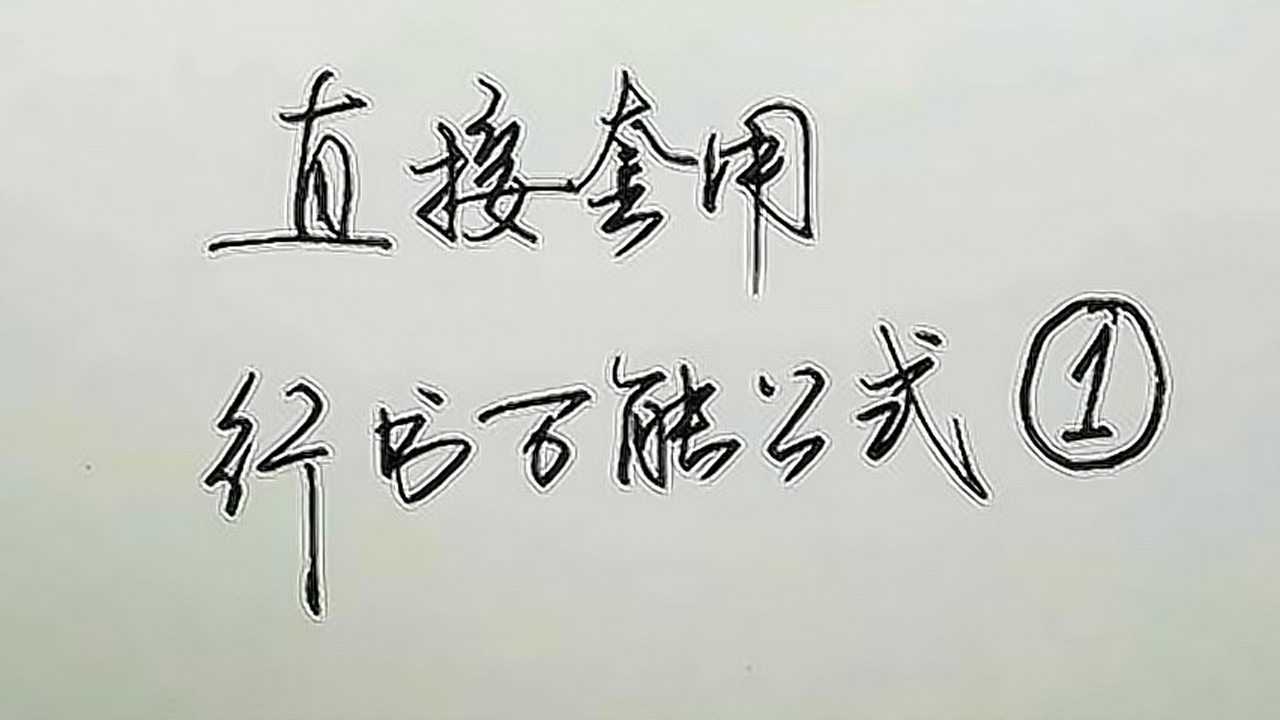 直接套用
行书万能公式①